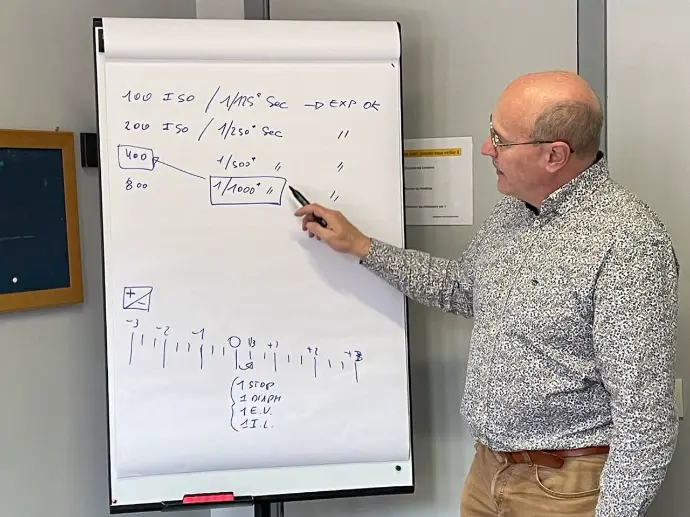 100 ISO / 1/125° Sec → EXP OK
200 ISO / 1/250° Sec "
400 1/500° " "
800 1/1000° " "
+ -
-3 -2 -1 0 1/3 +1 +2 +3
1 STOP
1 DIAPH
1 E.V.
1 I.L.